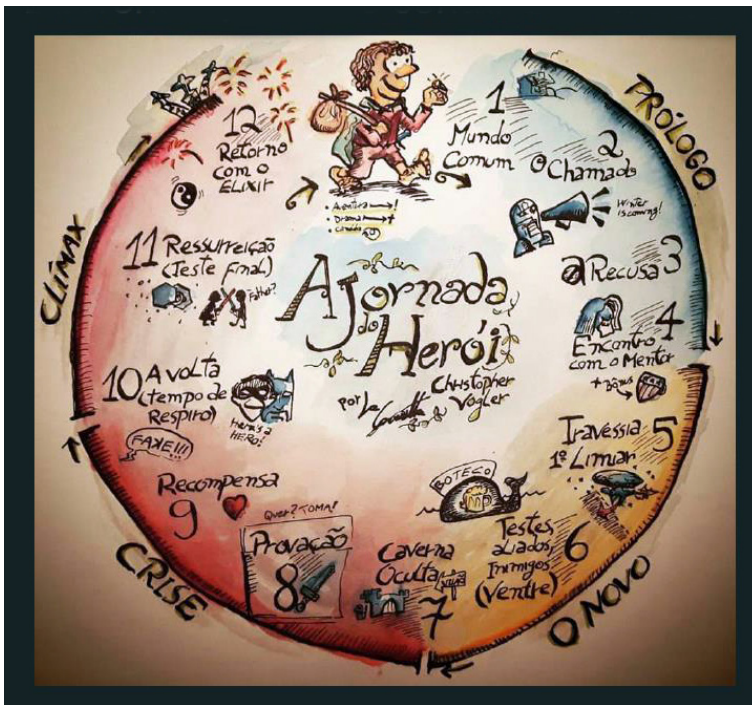 A Jornada
do
Herói
Christopher
Vogler
por
PRÓLOGO
1
Mundo
Comum
2
O Chamado
Winter
is coming!
a Recusa 3
4
Encontro
com o Mentor
+ Bônus
O NOVO
5
Travessia
1º Limiar
BOTECO
6
Testes,
aliados,
Inimigos
(Ventre)
CRISE
Caverna
Oculta
7
QUER? TOMA!
Provação
8
Recompensa
9
CLÍMAX
10 A volta
(tempo de
Respiro)
Here's a
HERO!
FAKE!!!
11 Ressurreição
(Teste Final)
Father?
12
Retorno
com o
ELIXIR